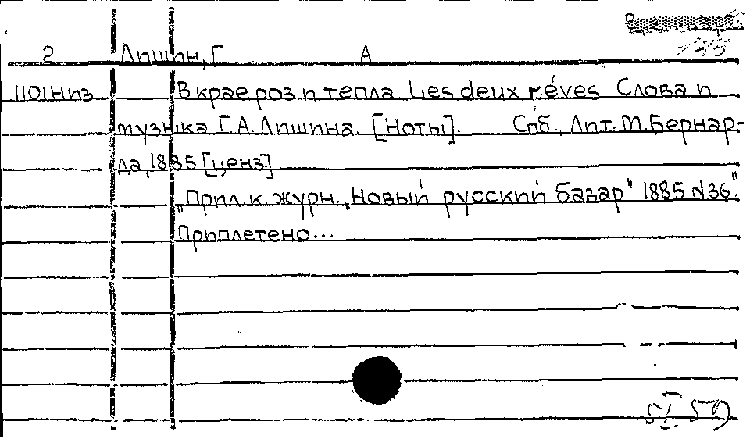 2 Лишин, Г А
1101низ В крае роз и тепла Les deux rêves Слова и
музыка Г.А. Лишина. [Ноты]. Спб., Лит. М. Бернар-
да, 1885 [ценз]
„Прил. к. журн. „Новый русский базар" 1885 N36."
Приплетено...